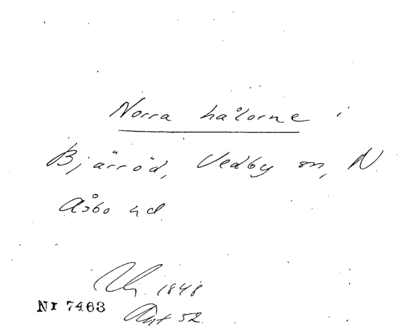 Norra hålorne i
Bjärröd, Vedby sn, N.
Åsbo hd.
1848
NI 7463
Akt 52.